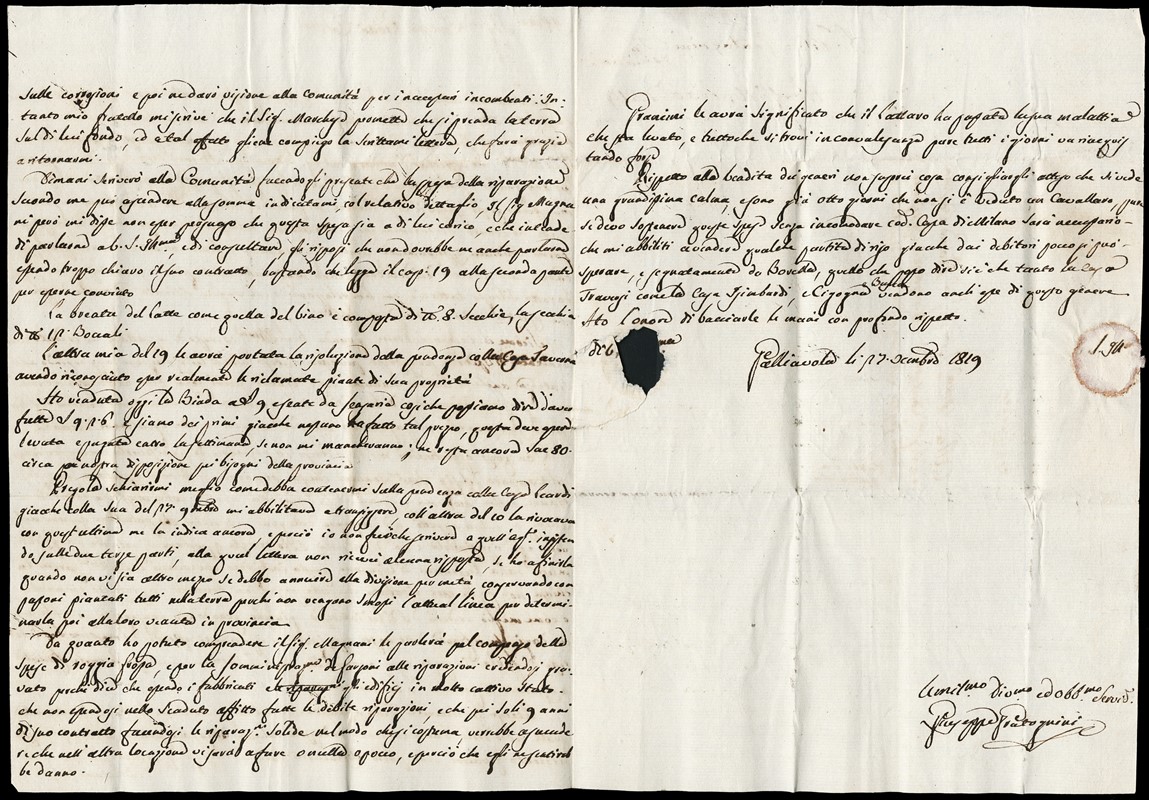 sulle corrosioni e poi ne darò visione alla Comunità per i necessari incombenti. In-
tanto mio fratello mi scrive che il Sig. Marchese permette che si prenda la terra
sul di lui fondo, ed a tal effetto gliene compiego la scrittami lettera, che farà grazia
a ritornarmi.
Dimani scriverò alla Comunità facendogli presente che la spesa della riparazione
secondo me può ascendere alla somma indicatami, col relativo dettaglio, Il Sig. Magna
ni però mi disse non esser persuaso che questa spesa sia a di lui carico, e che intende
di parlarne a V. S. Ill.ma, ed consultare gli risposi che non dovrebbe ne anche parlarne
essendo troppo chiaro il suo contratto, bastando che legga il cap. 19 alla seconda parte
per esserne convinto
La brenta del latte come quella del vino è composta di 8. Secchie, la secchia
di 12 Boccali
L'altra mia del 19 le avrà portata la risoluzione della pendenza colla Casa Taverna
avendo riconosciuto esser realmente le riclamate piante di sua proprietà
Ho venduta oggi la Biada a 9 esente da senseria cosiche possiamo dire d'aver
fatte 9.2.6. e siamo dei primi giacche nessuno ha fatto tal prezzo, questa deve esser
levata e pagata entro la settimana, se non mi mancheranno; ne resta ancora Sac 80.
circa per nostra disposizione pei bisogni della provincia
Pregola schiarirmi meglio come debba contenermi sulla pendenza colla Casa
giacche colla sua del 27 9mbre mi abbilitava a transiggere, coll'altra del 10 la rivocava
con quest'ultima me la indica ancora, e perciò io non feci che scrivere a quell' Ag.te insisten
do sulle due terze parti, alla qual lettera non ricevei alcuna risposta, se ho a finirla
quando non vi sia altro mezzo se debbo annuire alla divisione per metà conservando con
passoni piantati tutti nella terra perchè non vengano smossi l'attual linea per determi-
narla poi alla loro venuta in provincia
Da quanto ho potuto comprendere il Sig. Magnani le parlerà pel compenso delle
spese di roggia fossa, e per la somministraz.ne de' farsoni alle riparazioni credendosi gra-
vato perchè dice che essendo i fabbricati e gli edificj in molto cattivo stato.
che non essendosi nello scaduto affitto fatte le debite riparazioni, e che pei soli 9 anni
di suo contratto facendosi le riparaz.ni solide nel modo che si costuma verrebbe a succede
re che nell'altra locazione vi sarà a fare o nulla o poco, e perciò che egli ne sentireb
be danno.
Francini le avrà significato che il Lattaro ha passata la sua malattia
che sta levato, e tuttoche si trovi in convalescenza pure tutti i giorni va riacquis
tando forze
Rispetto alla vendita de' generi non saprei cosa consigliargli atteso che si vede
una grandissima calma, e sono già otto giorni che non si è veduto un Cavallaro, pure
se devo sostenere queste spese senza incomodare cod.a Casa di Milano sarà necessario
che mi abbiliti a vendere qualche partita di riso giacche dai debitori poco si può
sperare, e segnatamente da Bovella, quello che posso dire si è che tanto la Casa
Travesi come la Casa Isimbardi, e Cigogna Busca vendono anch'esse di questo genere
Ho l'onore di baciarle le mani con profondo rispetto.
Di V.
Palliavola li 27 Dicembre 1819
Umil.mo Div.mo ed Obb.mo Servid.e
Giuseppe Fratognini